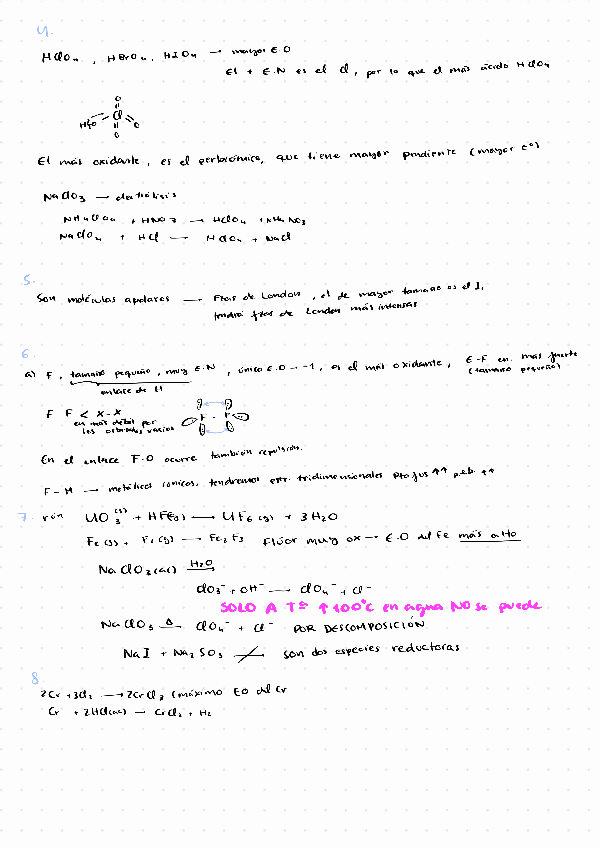 4.
HClO₄ , HBrO₄ , HIO₄ → mayor E.O
El + E.N es el Cl, por lo que el más ácido HClO₄
O
HO Cl O
O
El más oxidante, es el perbrómico, que tiene mayor pendiente (mayor E°)
NaClO₃ → electrólisis
NH₄ClO₄ + HNO₃ → HClO₄ + NH₄NO₃
NaClO₄ + HCl → HClO₄ + NaCl
5.
Son moléculas apolares → Fzas de London, el de mayor tamaño es el I,
tendrá fzas de London más intensas
6.
a) F, tamaño pequeño, muy E.N, único E.O → -1, es el más oxidante, E-F en. más fuerte
(tamaño pequeño)
enlace de H
F F < X-X
en más débil por
los orbitales vacíos
F - F
En el enlace F-O ocurre también repulsión.
F-M → metálicos iónicos, tendremos estr. tridimensionales Ptofus ↑↑ p.eb. ↑↑
7. rxn UO₃ (s) + HF(g) → UF₆ (g) + 3H₂O
Fe(s) + F₂(g) → Fe₂F₃ Flúor muy ox → E.O del Fe más alto
NaClO₃(ac) H₂O →
ClO₃⁻ + OH⁻ → ClO₄⁻ + Cl⁻
SOLO A Tª ↑ 100°C en agua NO se puede
NaClO₃ Δ → ClO₄⁻ + Cl⁻ POR DESCOMPOSICIÓN
NaI + Na₂SO₃ ↛ son dos especies reductoras
8
2Cr + 3Cl₂ → 2CrCl₃ (máximo EO del Cr
Cr + 2HCl(ac) → CrCl₂ + H₂